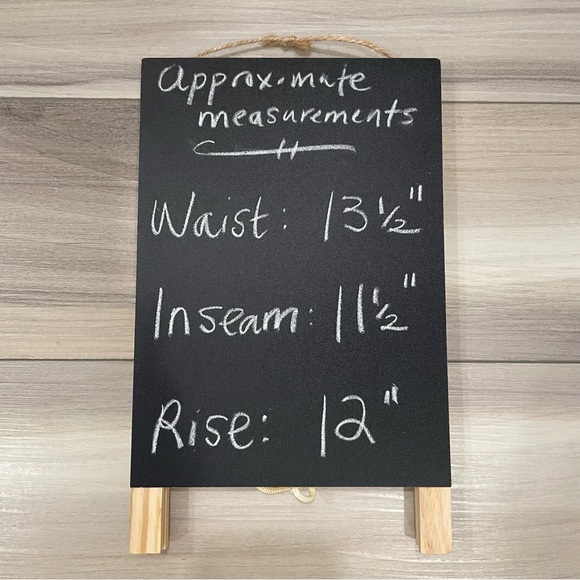 approximate
measurements
Waist: 13 1/2"
Inseam: 11 1/2"
Rise: 12"